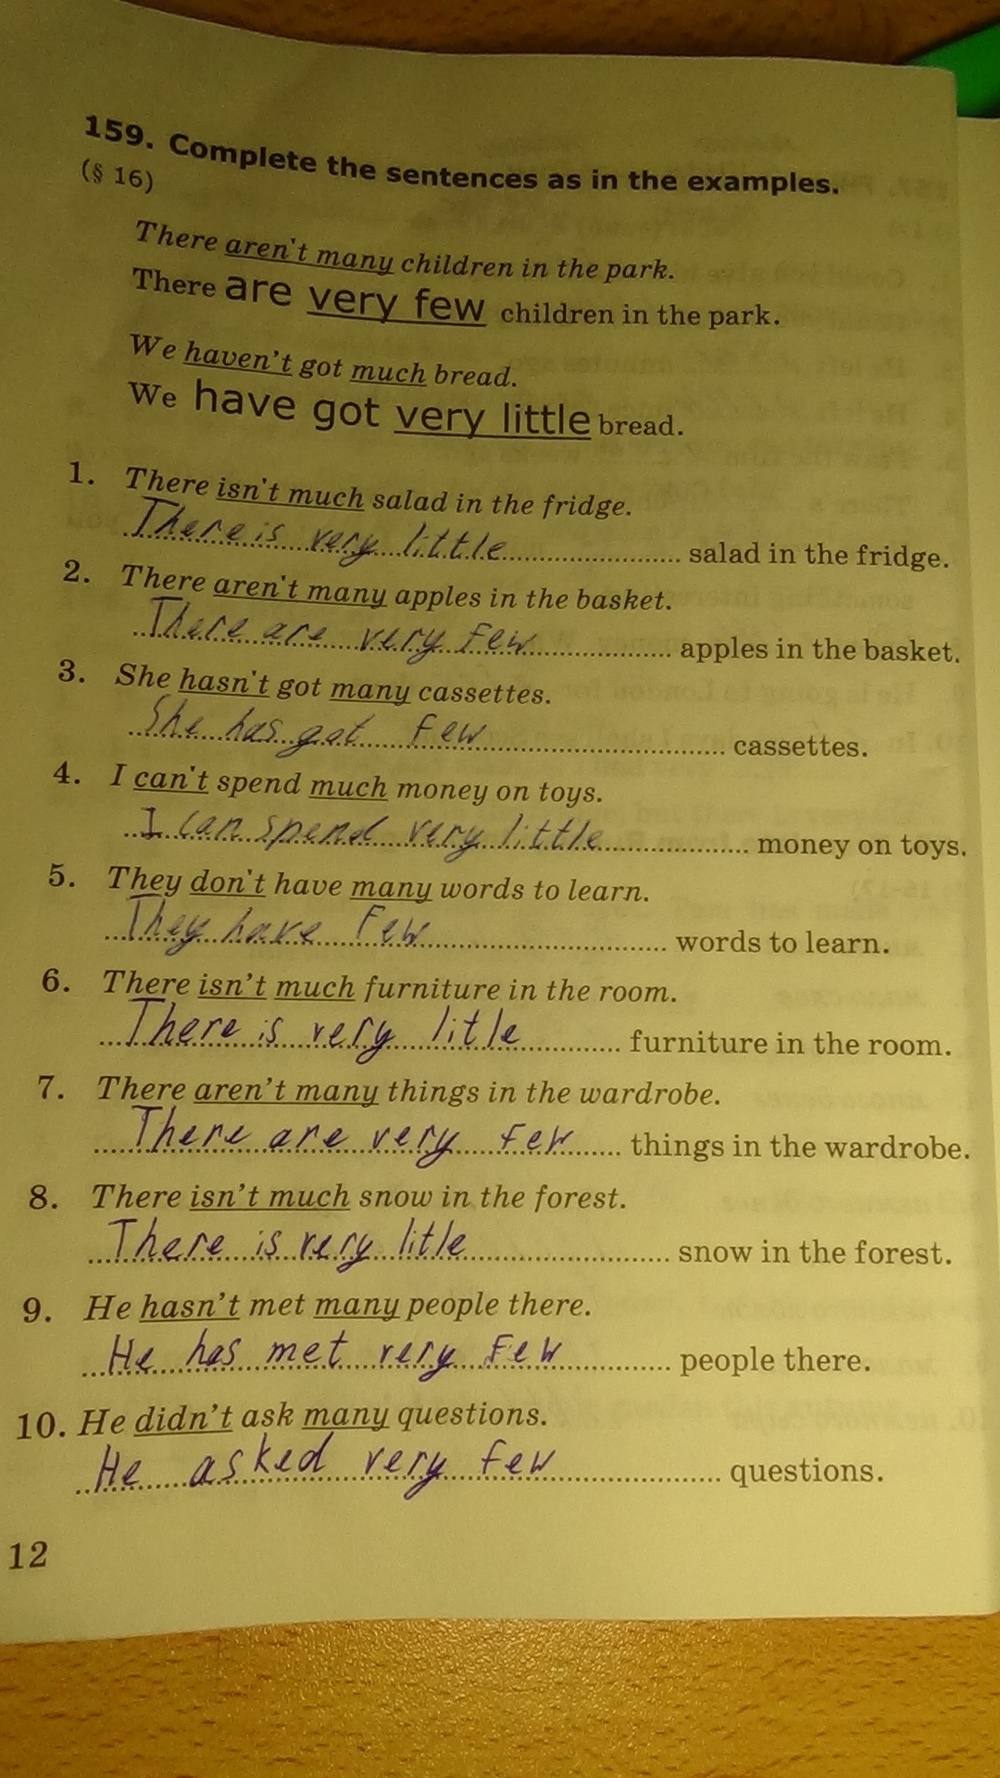 159. Complete the sentences as in the examples.
(§ 16)
There aren't many children in the park.
There are very few children in the park.
We haven't got much bread.
We have got very little bread.
1. There isn't much salad in the fridge.
There is very little salad in the fridge.
2. There aren't many apples in the basket.
There are very few apples in the basket.
3. She hasn't got many cassettes.
She has got few cassettes.
4. I can't spend much money on toys.
I can spend very little money on toys.
5. They don't have many words to learn.
They have few words to learn.
6. There isn't much furniture in the room.
There is very litle furniture in the room.
7. There aren't many things in the wardrobe.
There are very few things in the wardrobe.
8. There isn't much snow in the forest.
There is very litle snow in the forest.
9. He hasn't met many people there.
He has met very few people there.
10. He didn't ask many questions.
He asked very few questions.
12